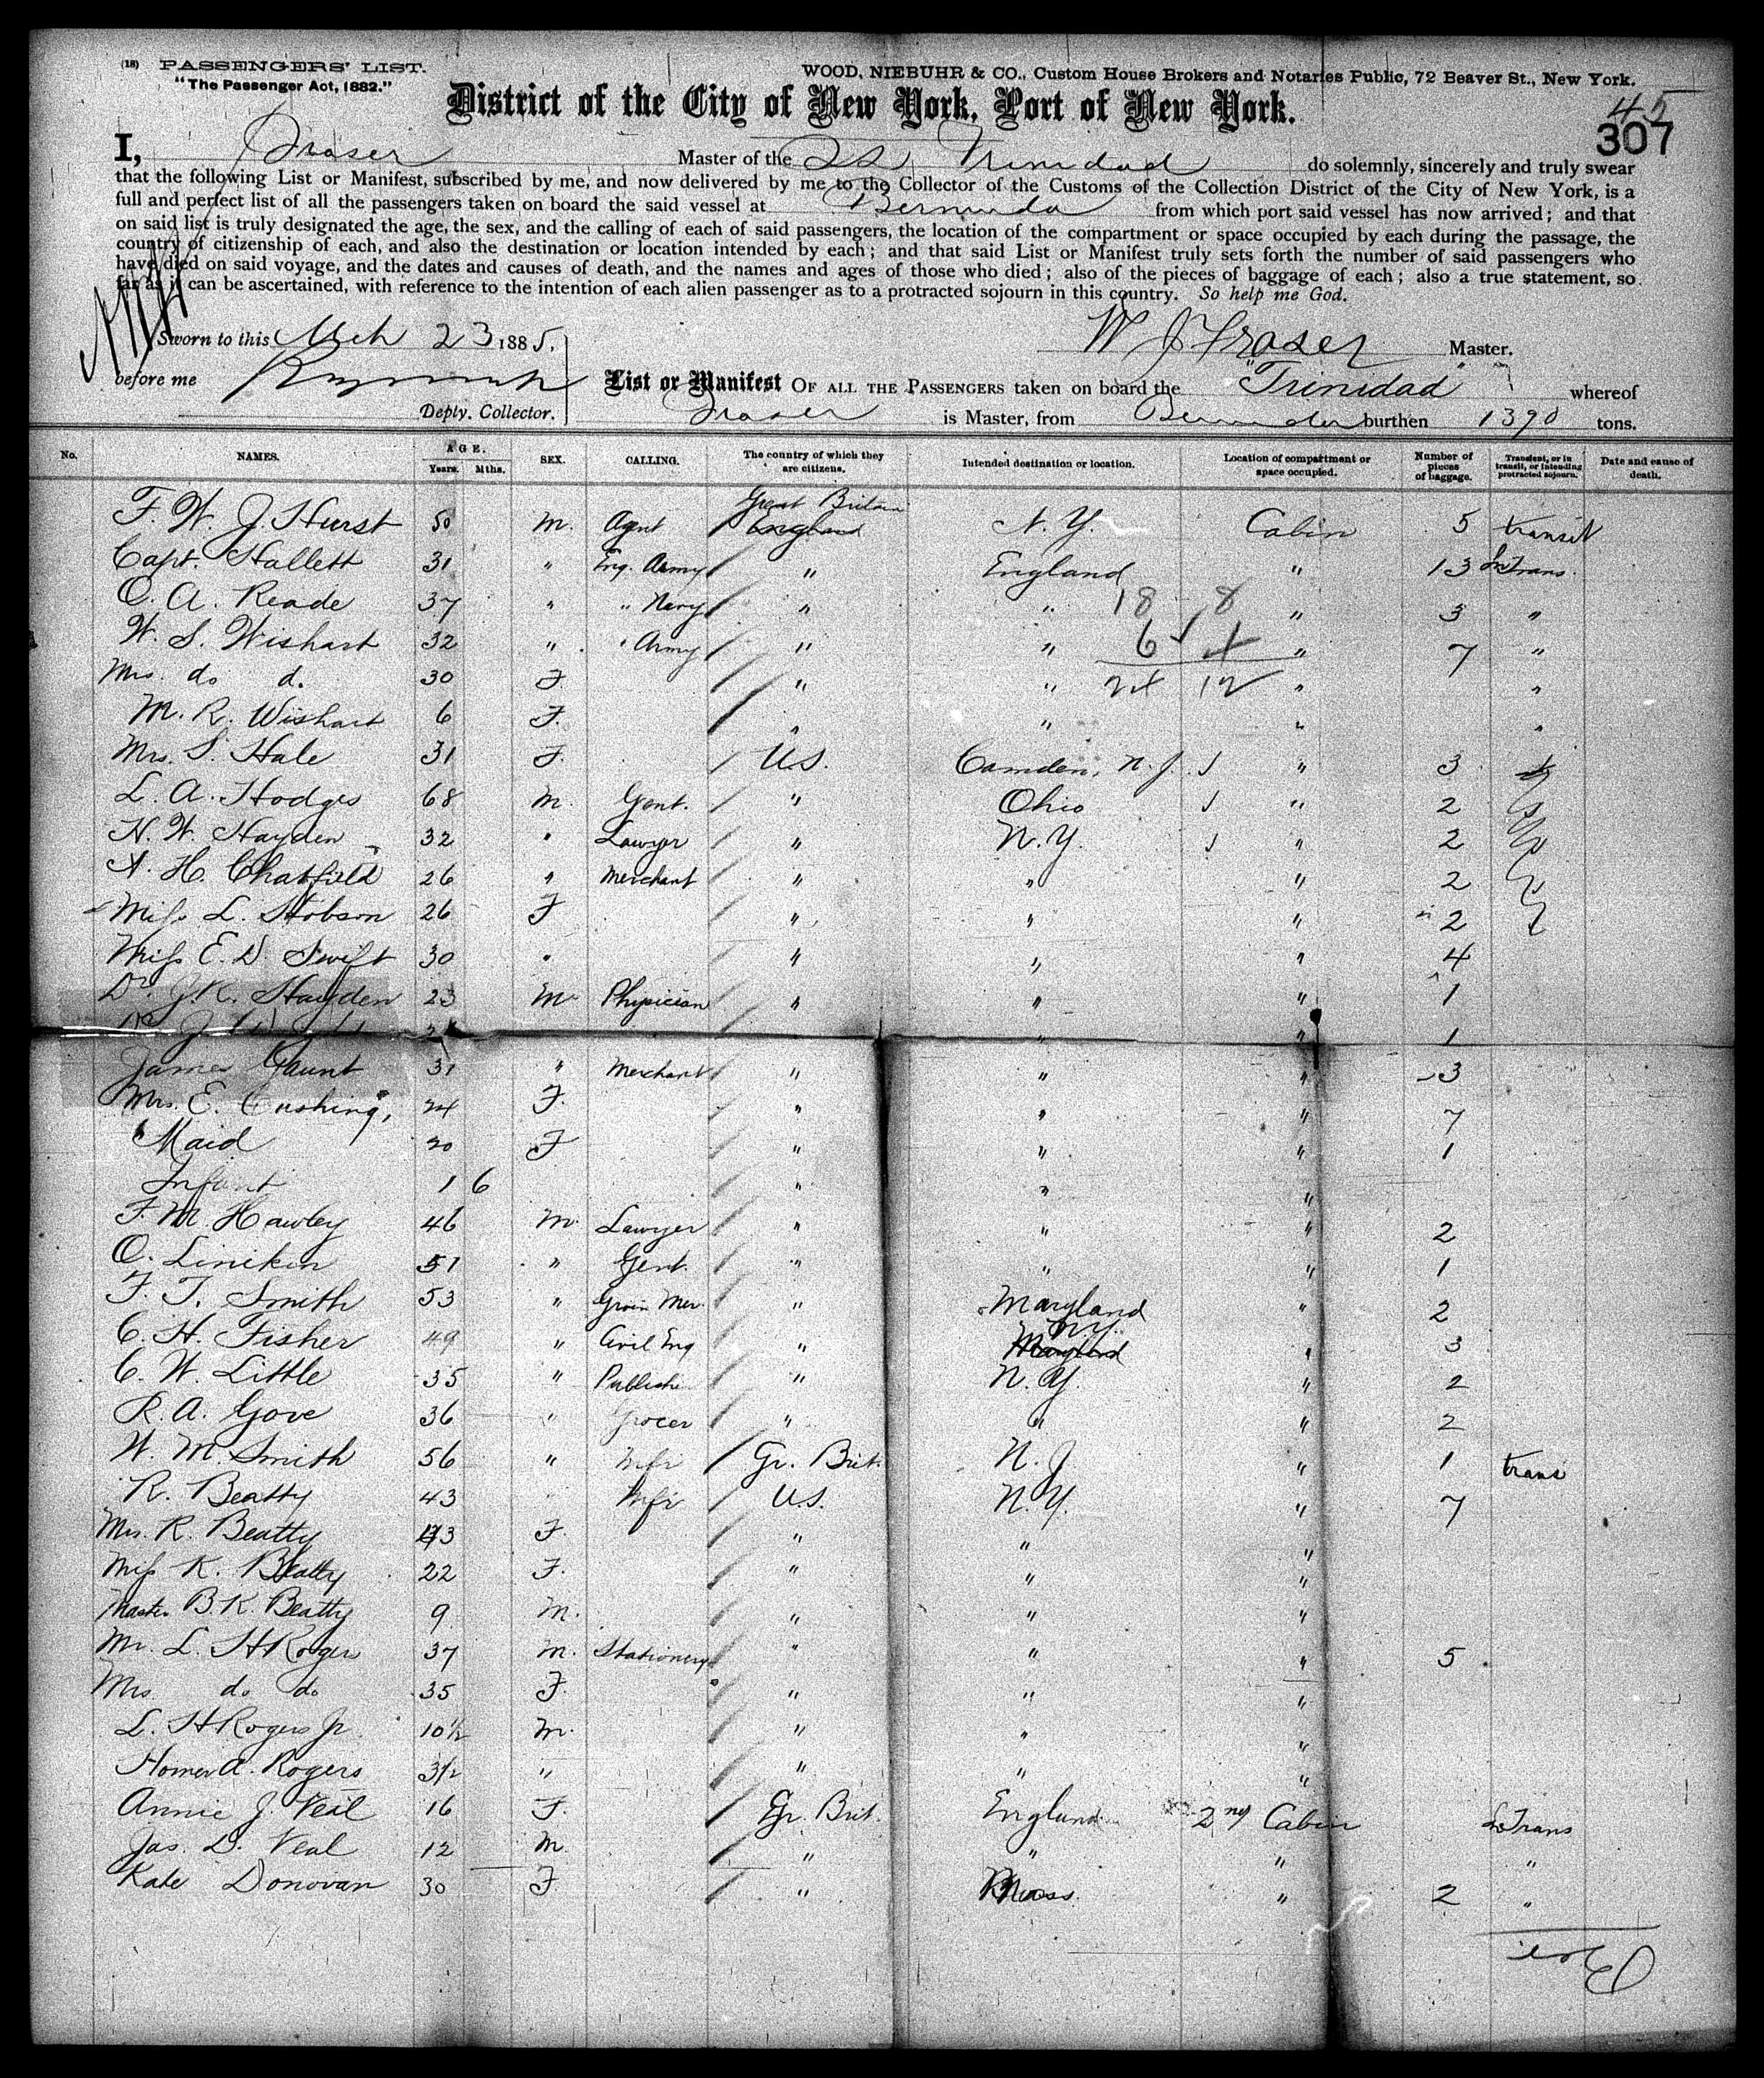 (18) PASSENGERS' LIST.
"The Passenger Act, 1882."
WOOD, NIEBUHR & CO., Custom House Brokers and Notaries Public, 72 Beaver St., New York.
District of the City of New York, Port of New York.
45
307
I, Fraser Master of the SS Trinidad do solemnly, sincerely and truly swear
that the following List or Manifest, subscribed by me, and now delivered by me to the Collector of the Customs of the Collection District of the City of New York, is a
full and perfect list of all the passengers taken on board the said vessel at Bermuda from which port said vessel has now arrived; and that
on said list is truly designated the age, the sex, and the calling of each of said passengers, the location of the compartment or space occupied by each during the passage, the
country of citizenship of each, and also the destination or location intended by each; and that said List or Manifest truly sets forth the number of said passengers who
have died on said voyage, and the dates and causes of death, and the names and ages of those who died; also of the pieces of baggage of each; also a true statement, so
far as it can be ascertained, with reference to the intention of each alien passenger as to a protracted sojourn in this country. So help me God.
Sworn to this Mch 23 1885.
W J Fraser Master.
before me
Depty. Collector.
List or Manifest OF ALL THE PASSENGERS taken on board the "Trinidad" whereof
Fraser is Master, from Bermuda burthen 1390 tons.
No. NAMES. AGE. Years. Mths. SEX. CALLING. The country of which they are citizens. Intended destination or location. Location of compartment or space occupied. Number of pieces of baggage. Transient, or in transit, or intending protracted sojourn. Date and cause of death.
F. W. J. Hurst 50 M. Agent Great Britain England N.Y. Cabin 5 transit
Capt. Hallett 31 " Eng. Army " England " 13 In Trans.
O. A. Reade 37 " " Navy " " 18 8 " 3 "
W. S. Wishart 32 " " Army " " 6 4 " 7 "
Mrs. do d. 30 F. " " 24 12 " "
M. R. Wishart 6 F. " " " "
Mrs. S. Hale 31 F. U.S. Camden, N.J. " 3
L. A. Hodges 68 M. Gent. " Ohio " 2
H. W. Hayden 32 " Lawyer " N.Y. " 2
A. H. Chatfield 26 " Merchant " " " 2
Miss L. Hobson 26 F " " " 2
Miss E. D. Swift 30 " " " " 4
Dr. J. K. Hayden 23 M Physician " " " 1
" " 1
James Gaunt 31 " Merchant " " " 3
Mrs. E. Cushing, 24 F. " " " 7
Maid 20 F " " " 1
Infant 1 6 " " "
F. M. Hawley 46 M. Lawyer " " " 2
O. Linikin 51 " Gent. " " " 1
F. T. Smith 53 " Grain Mer. " Maryland " 2
C. H. Fisher 49 " Civil Eng " Maryland N.Y. " 3
C. W. Little 35 " Publisher " N.Y. " 2
R. A. Gove 36 " Grocer " " " 2
W. M. Smith 56 " Mfr Gr. Brit. N.J " 1 trans
R. Beatty 43 Mfr U.S. N.Y. " 7
Mrs. R. Beatty 43 F. " " "
Miss K. Beatty 22 F. " " "
Master B. K. Beatty 9 M. " " "
Mr. L. H Rogers 37 M. Stationery " " " 5
Mrs. do do 35 F. " " "
L. H Rogers Jr. 10 1/2 M. " " "
Homer A. Rogers 3 1/2 " " " "
Annie J. Veal 16 F. Gr. Brit. England 2nd Cabin In Trans
Jas. D. Veal 12 M " " " "
Kate Donovan 30 F. " Mass. " 2 "